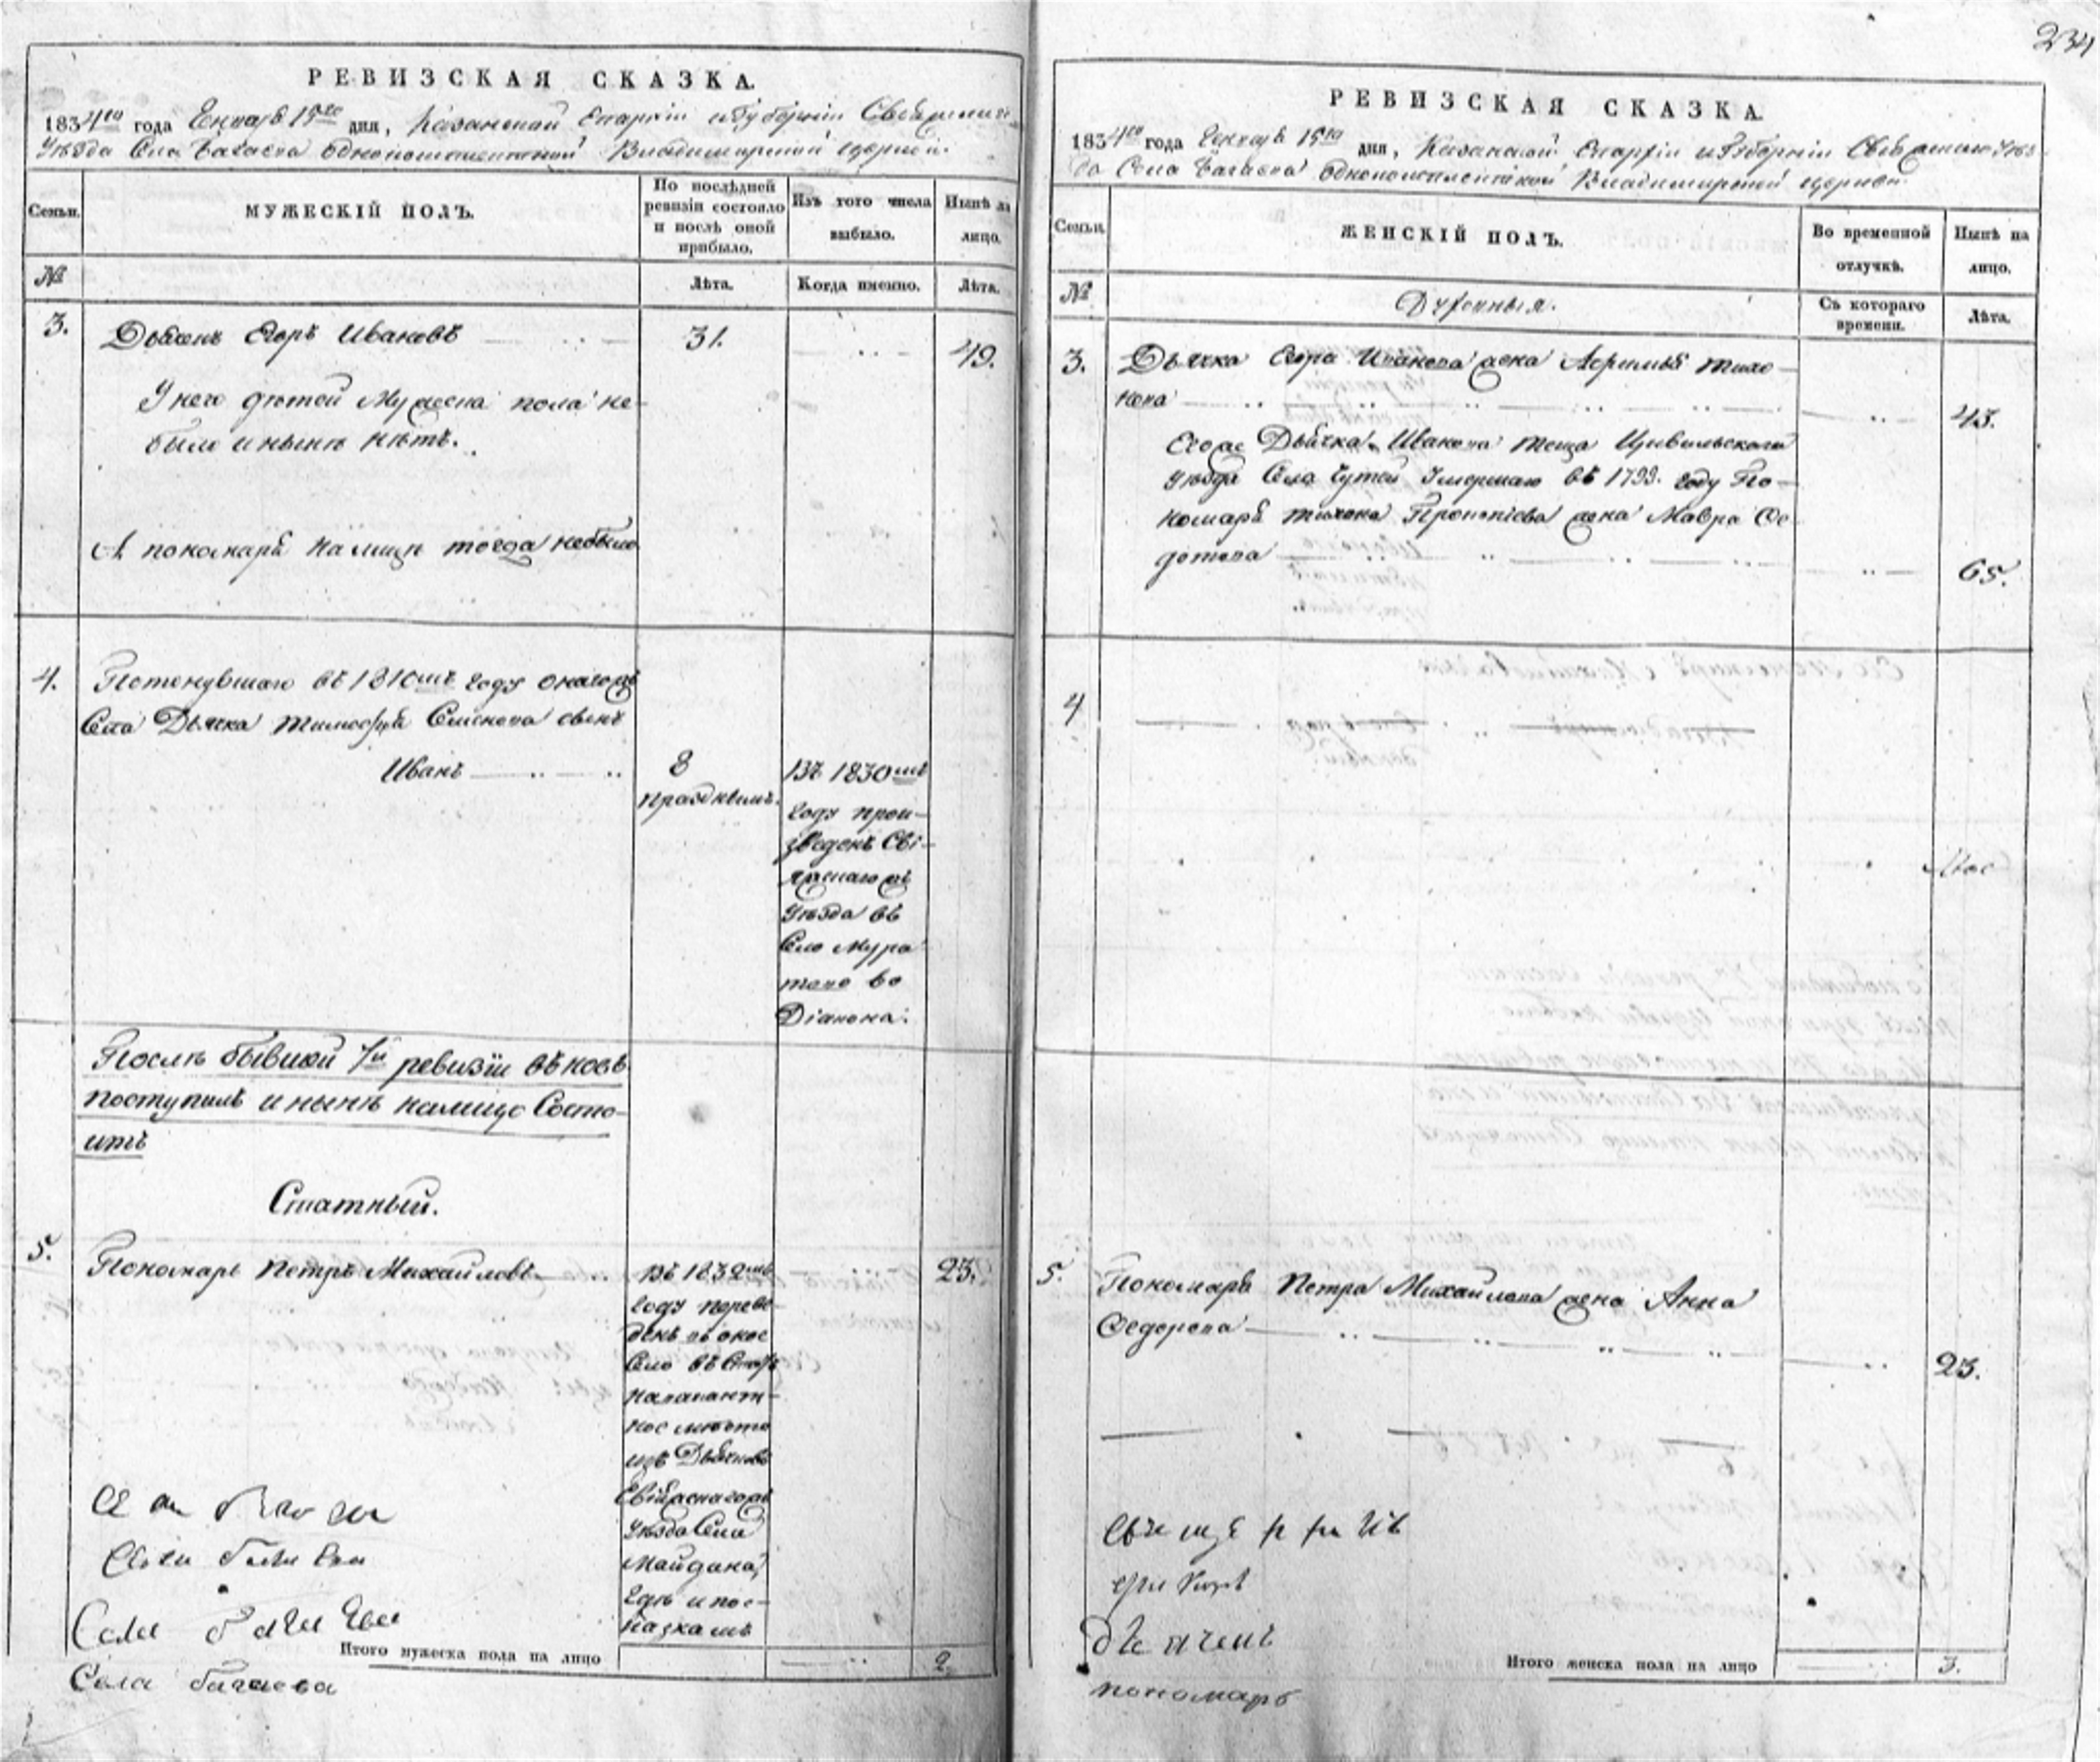 234
РЕВИЗСКАЯ СКАЗКА.
1834го года Генваря 15го дня, Казанской Епархіи и Губерніи Свіяжскаго
Уѣзда Села Багаева однокомплектной Владимирской церкви.
Семьи.
МУЖЕСКІЙ ПОЛЪ.
По послѣдней
ревизіи состояло
и послѣ оной
прибыло.
Изъ того числа
выбыло.
Нынѣ на
лицо.
№
Лѣта.
Когда именно.
Лѣта.
3.
Дьячекъ Егоръ Ивановъ
31.
49.
У него дѣтей Мужеска пола не
было и нынѣ нѣтъ.
А пономаря налицѣ тогда небыло
4.
Потонувшаго въ 1810мъ году онагожъ
Села Дьячка Тимофея Семенова сынъ
Иванъ
8
празднымъ.
Въ 1830мъ
году прои-
зведенъ Сві-
яжскаго жъ
Уѣзда въ
Село Мура
тово во
Діакона.
Послѣ бывшей 7й ревизіи вновь
поступилъ и нынѣ налицо Состо-
итъ
Статный.
5.
Пономарь Петръ Михайловъ
Въ 1832мъ
году переве-
денъ въ оное
Село въ
мѣсто
изъ
Свіяжскагожъ
Уѣзда Села
Майдана,
Гдѣ и по-
казанъ
23.
Села Багаева
Итого мужеска пола на лицо
2.
РЕВИЗСКАЯ СКАЗКА.
1834го года Генваря 15го дня, Казанской Епархіи и Губерніи Свіяжскаго Уѣз
да Села Багаева однокомплектной Владимирской церкви.
Семьи.
ЖЕНСКІЙ ПОЛЪ.
Во временной
отлучкѣ.
Нынѣ на
лицо.
№
Духовныя.
Съ котораго
времени.
Лѣта.
3.
Дьячка Егора Иванова жена Тихо-
нова
43.
Егожъ Дьячка Иванова теща Цивильскаго
Уѣзда Села Умершаго въ 1799. году По-
номаря Тихона Прокопіева жена Мавра Ѳе
дотова
65.
4
5.
Пономаря Петра Михайлова жена Анна
Ѳедорова
23.
дьячекъ
пономарь
Итого женска пола на лицо
3.